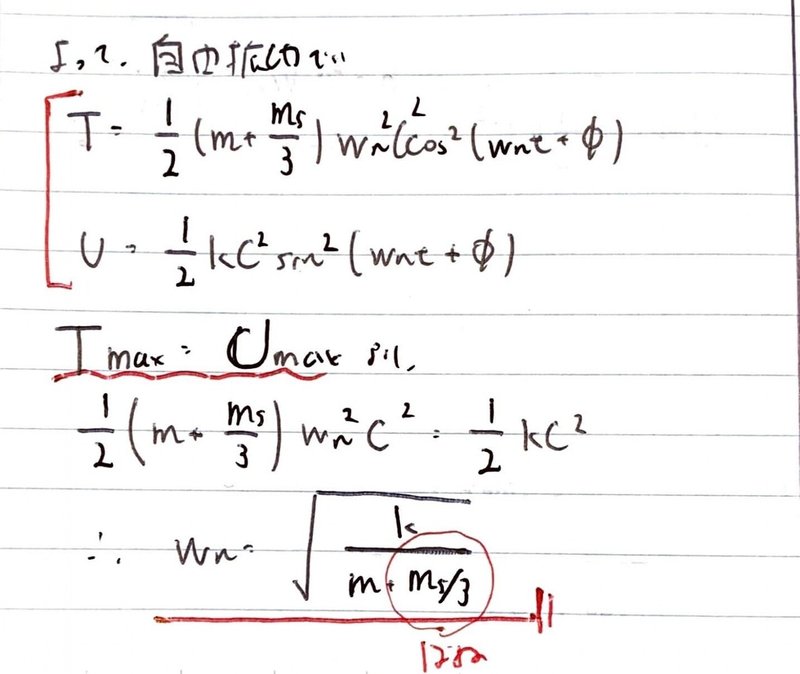 よって、自由振動で…
T = 1/2 (m + ms/3) wn²C²cos²(wnt + φ)
U = 1/2 kC² sin²(wnt + φ)
Tmax = Umax より、
1/2 (m + ms/3) wn²C² = 1/2 kC²
∴ wn = √(k/(m + ms/3))